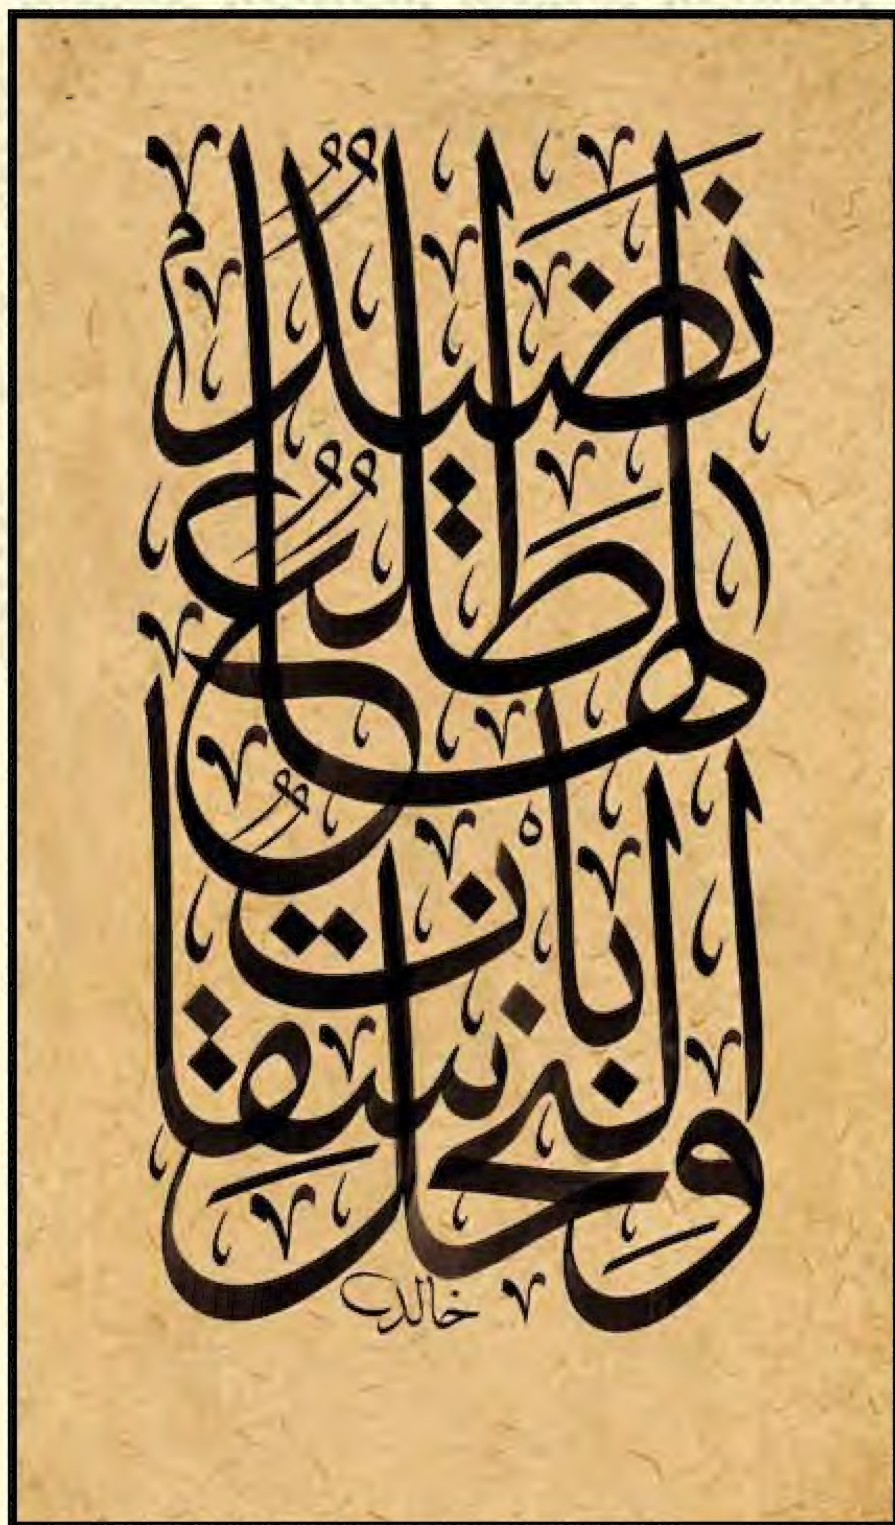 والنخل باسقات
لها طلع
نضيد
خالد